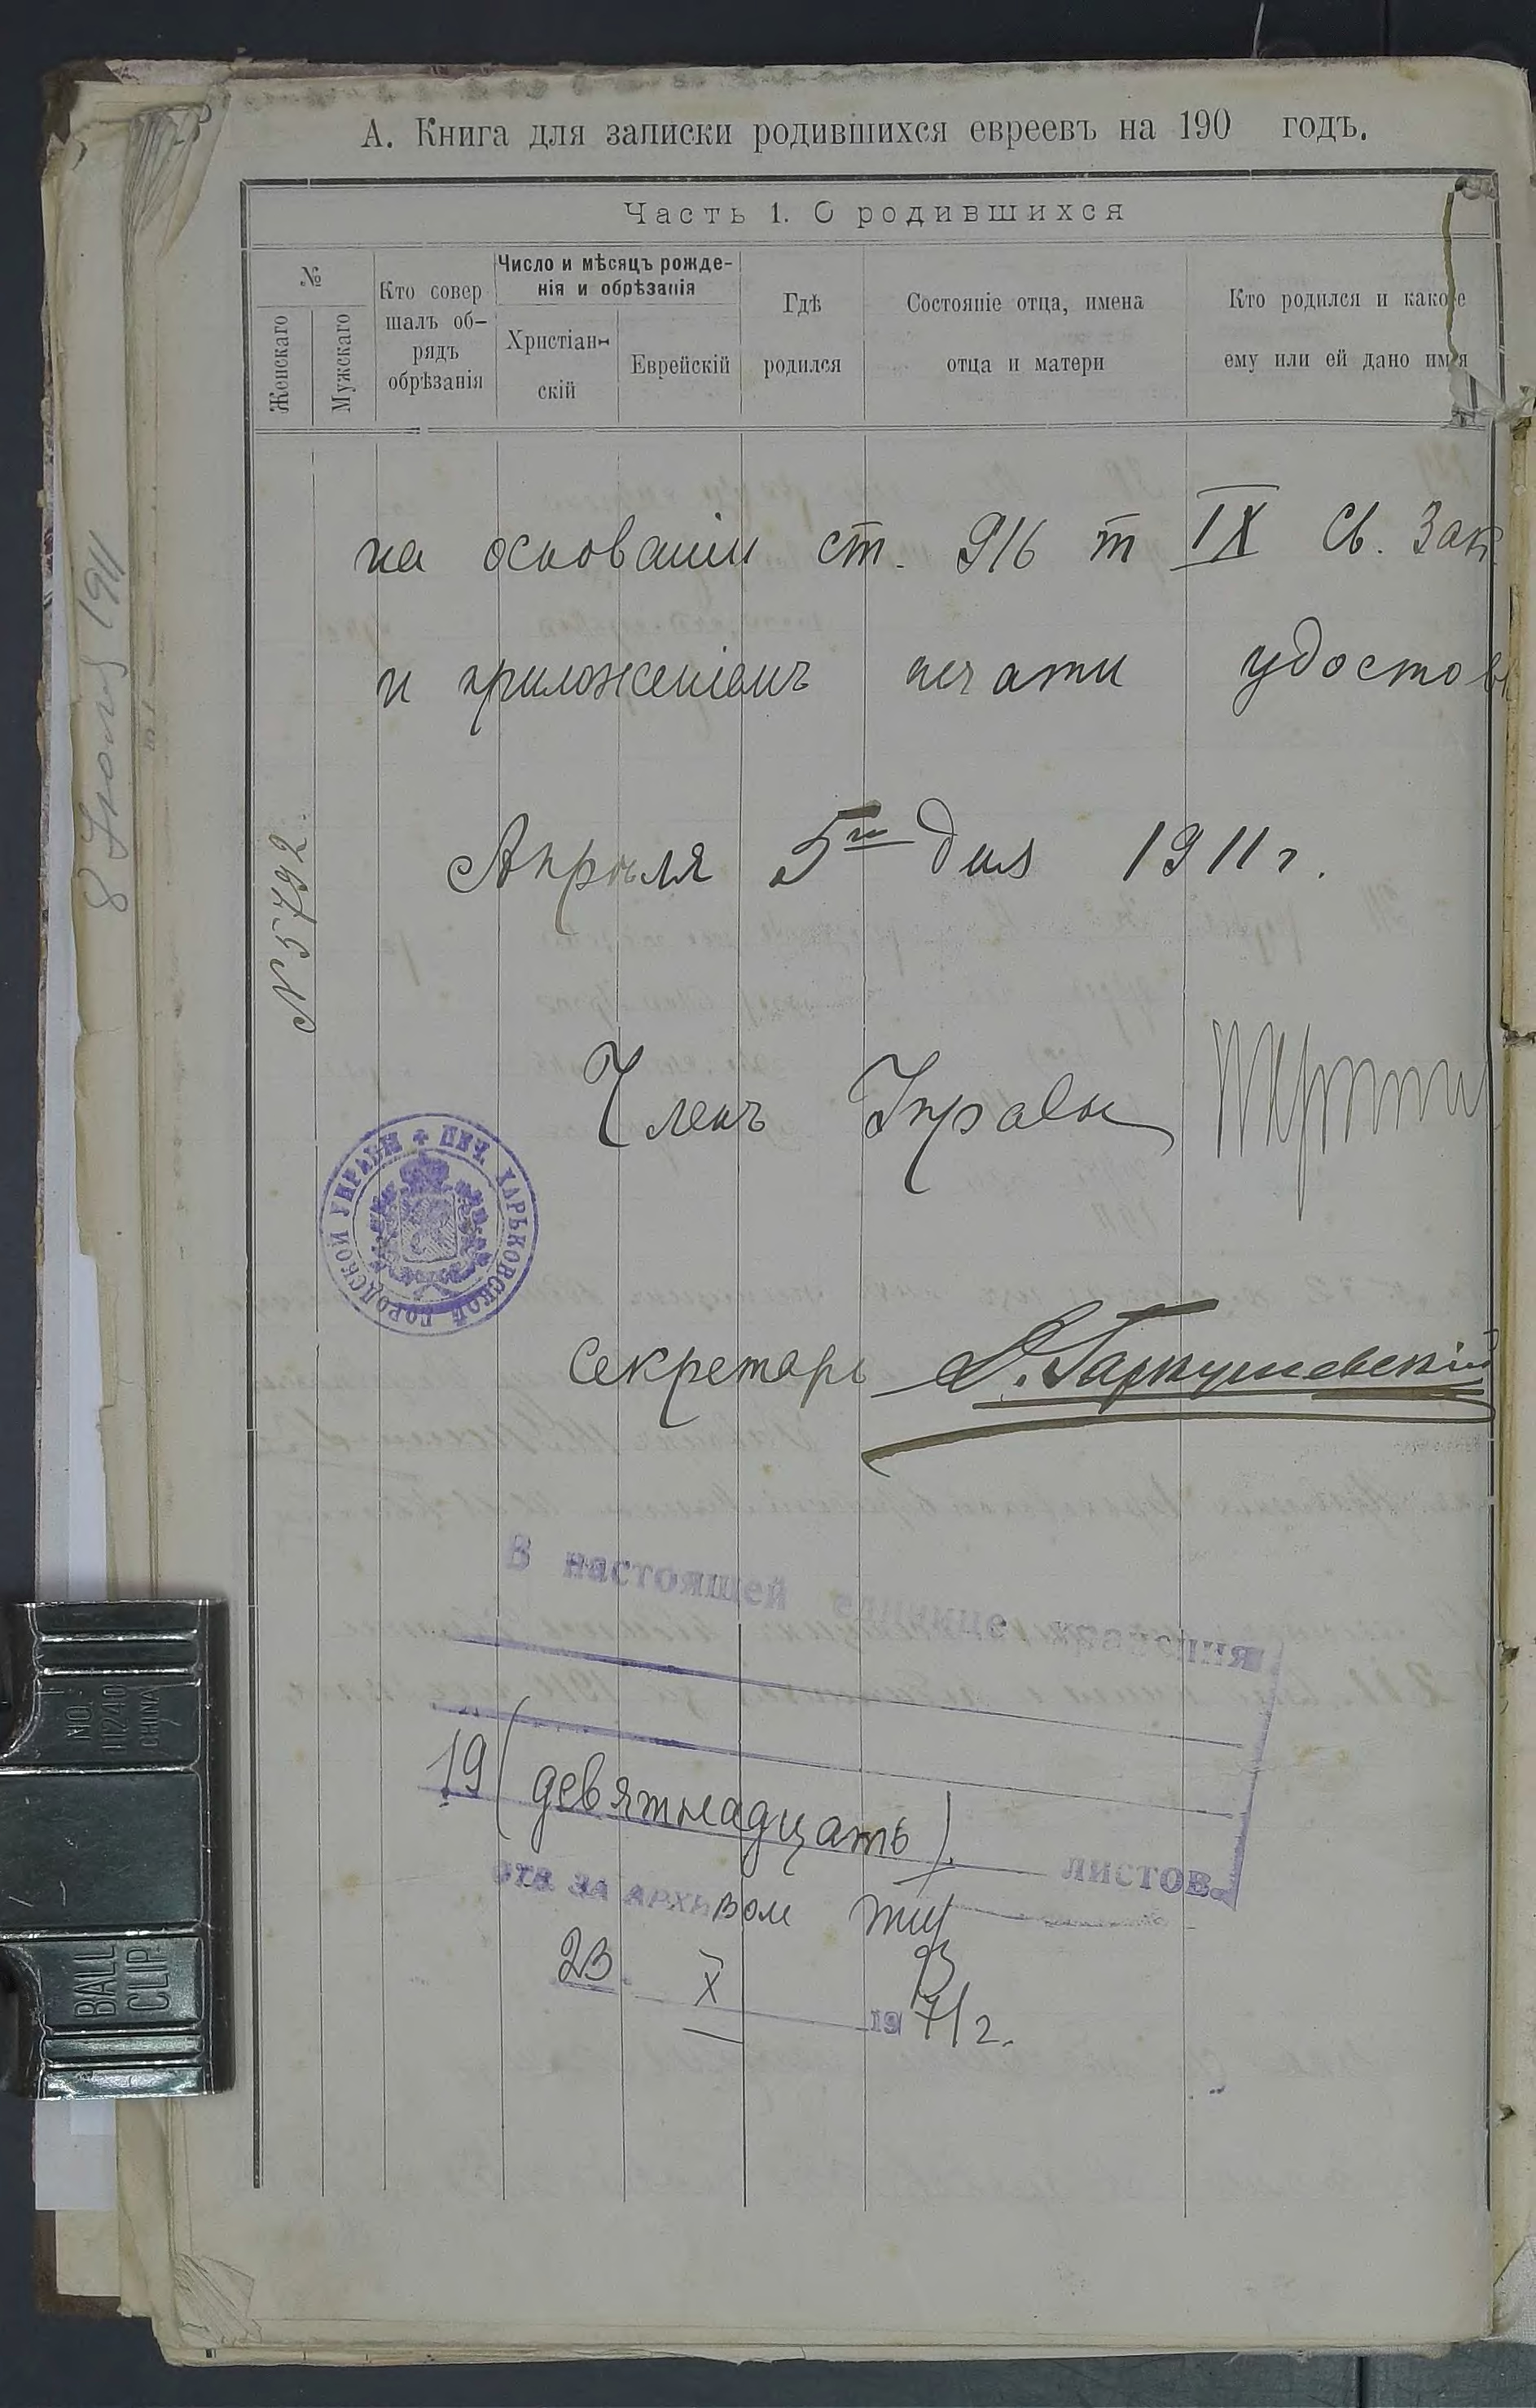 А. Книга для записки родившихся евреевъ на 190 годъ.
Часть 1. О родившихся
№
Женскаго
Мужскаго
Кто совер
шалъ об-
рядъ
обрѣзанія
Число и мѣсяцъ рожде-
нія и обрѣзанія
Христіан-
скій
Еврейскій
Гдѣ
родился
Состояніе отца, имена
отца и матери
Кто родился и какое
ему или ей дано имя
на основаніи ст. 916 т IX Св. Зак
и приложеніемъ печати удостов
Апрѣля 5го дня 1911 г.
№ 5792
8 Іюня 1911
Членъ Управы
ПЕЧ. ХАРЬКОВСКОЙ ГОРОДСКОЙ УПРАВЫ
Секретарь
В настоящей единице хранения
19 (девятнадцать).
листов.
ОТВ ЗА АРХИвом
23 X 19
NO.
11240
CHINA
BALL
CLIP